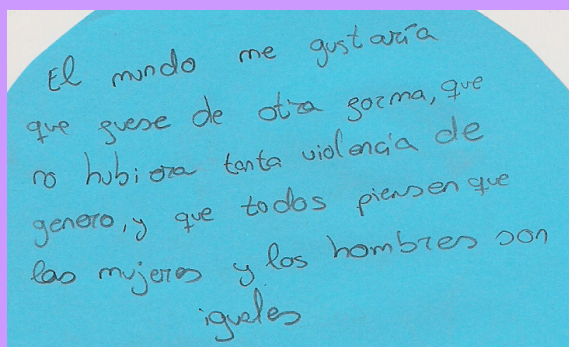 El mundo me gustaría
que fuese de otra forma, que
no hubiera tanta violencia de
genero, y que todos piensen que
las mujeres y los hombres son
iguales